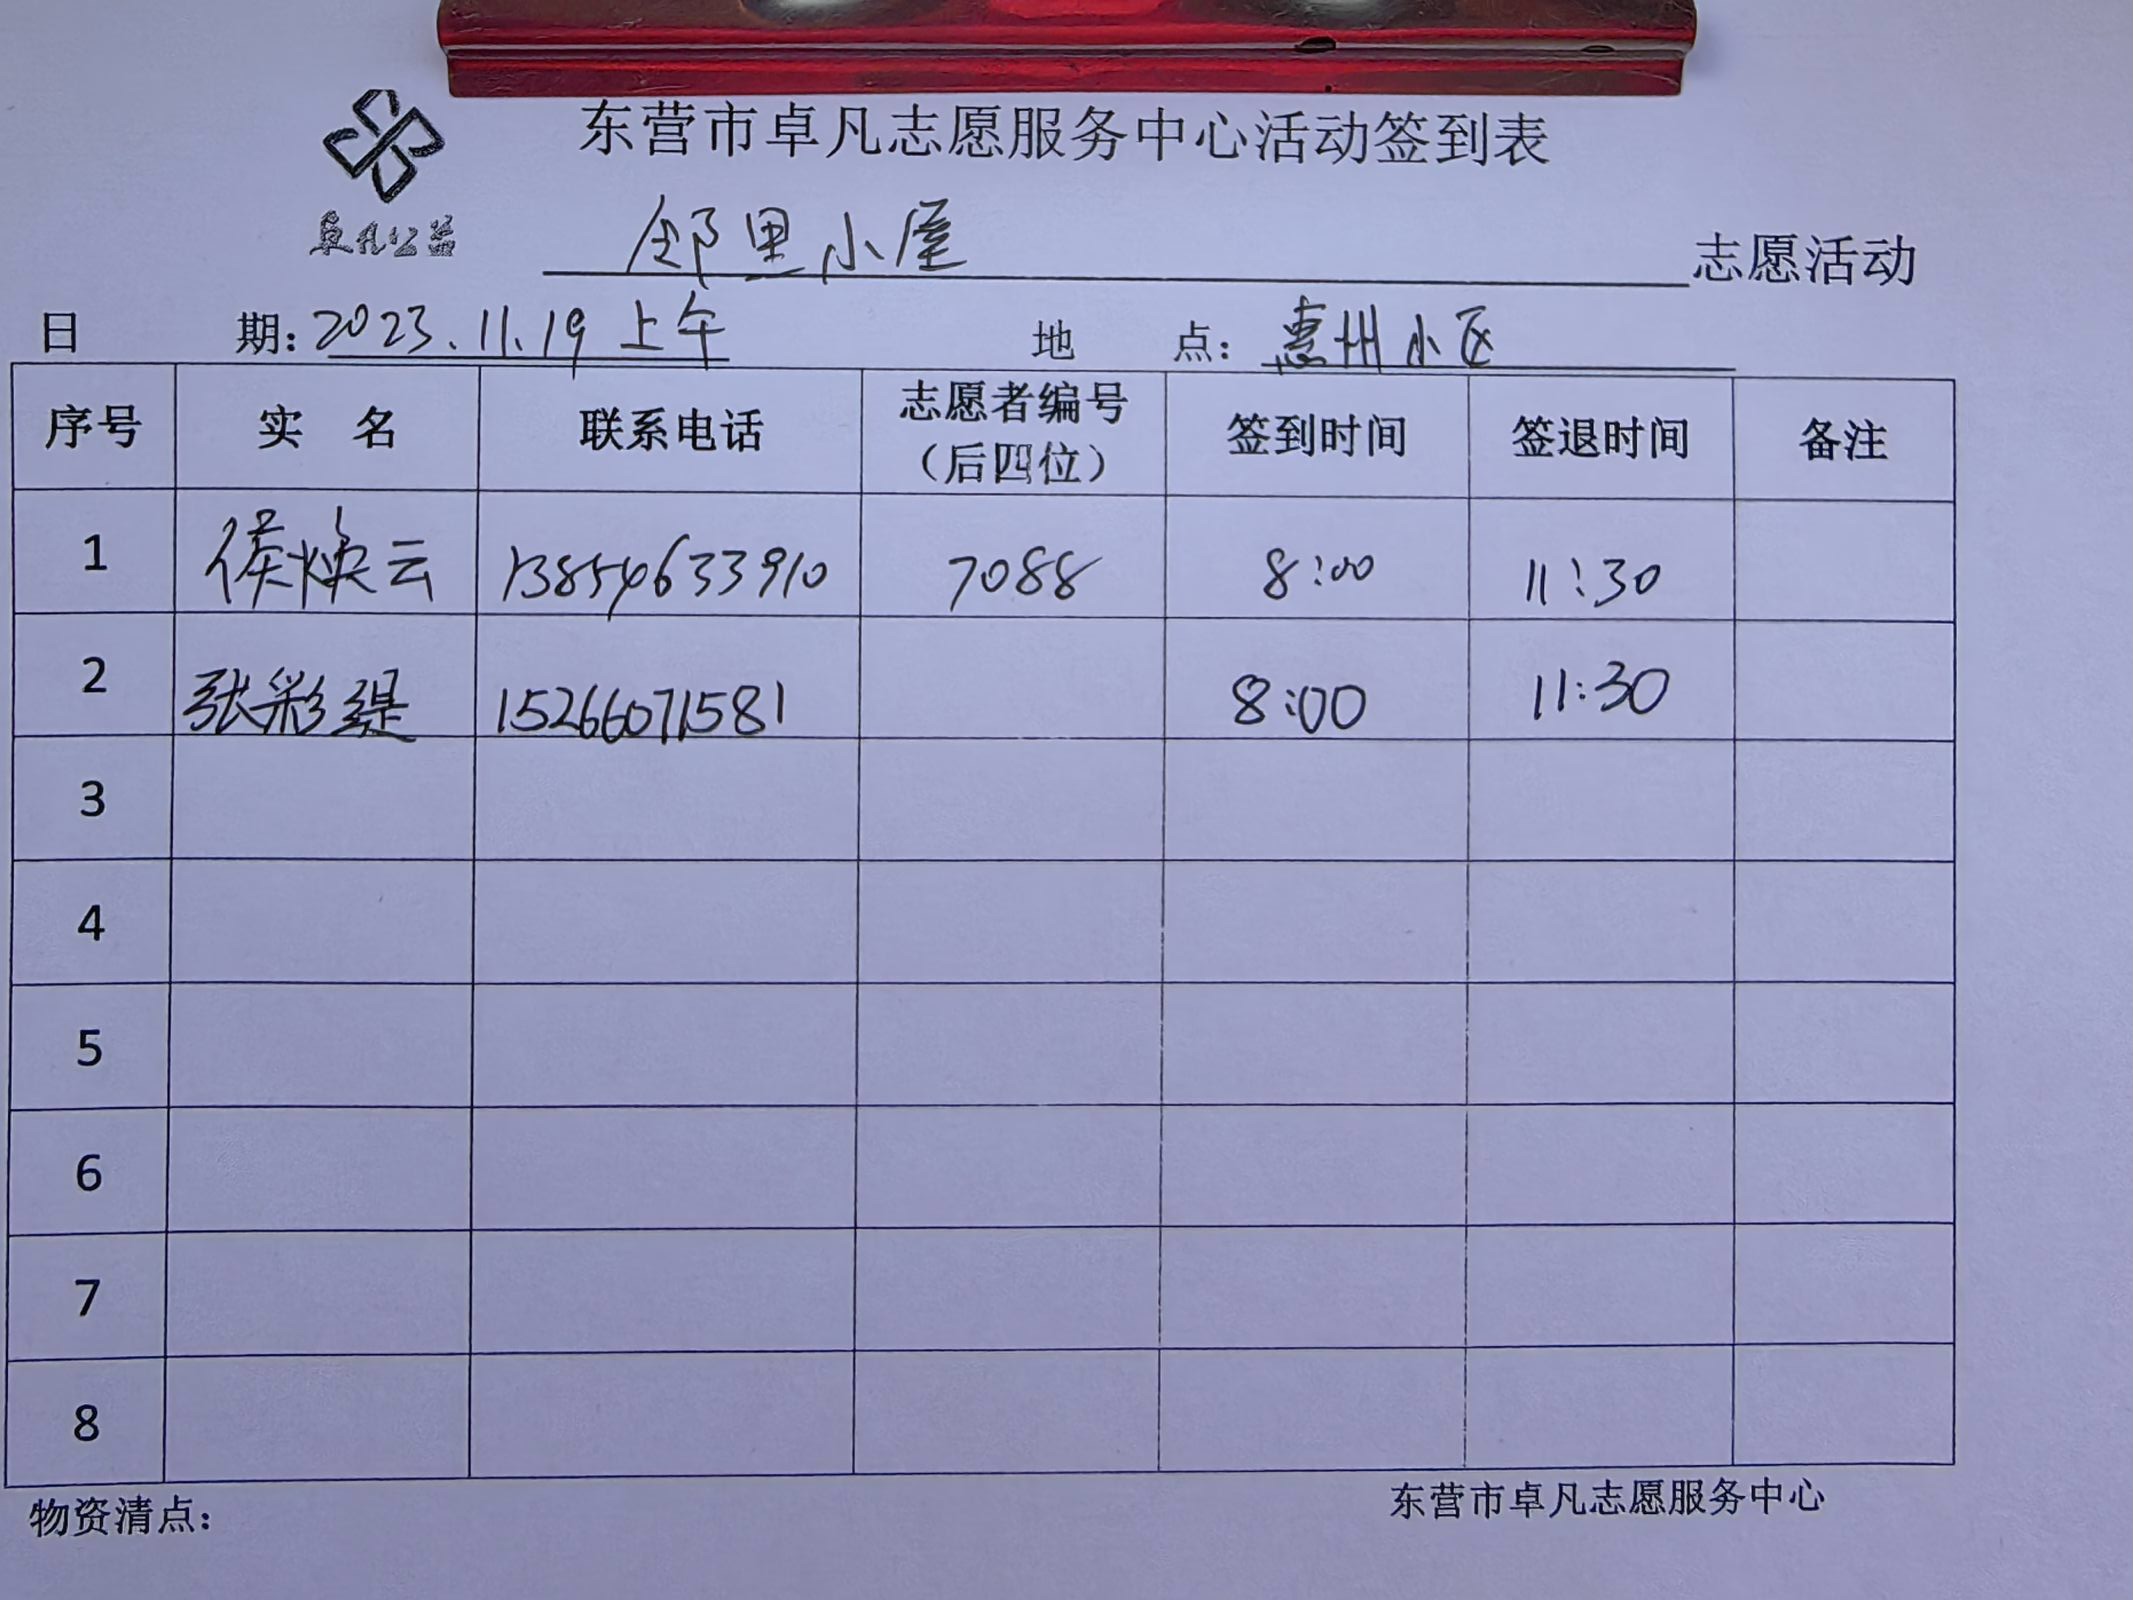 东营市卓凡志愿服务中心活动签到表
卓凡公益
邻里小屋 志愿活动
日 期：2023.11.19 上午 地 点：惠州小区
序号 实 名 联系电话 志愿者编号（后四位） 签到时间 签退时间 备注
1 侯焕云 13854633910 7088 8:00 11:30
2 张彩缇 15266071581 8:00 11:30
3
4
5
6
7
8
物资清点： 东营市卓凡志愿服务中心